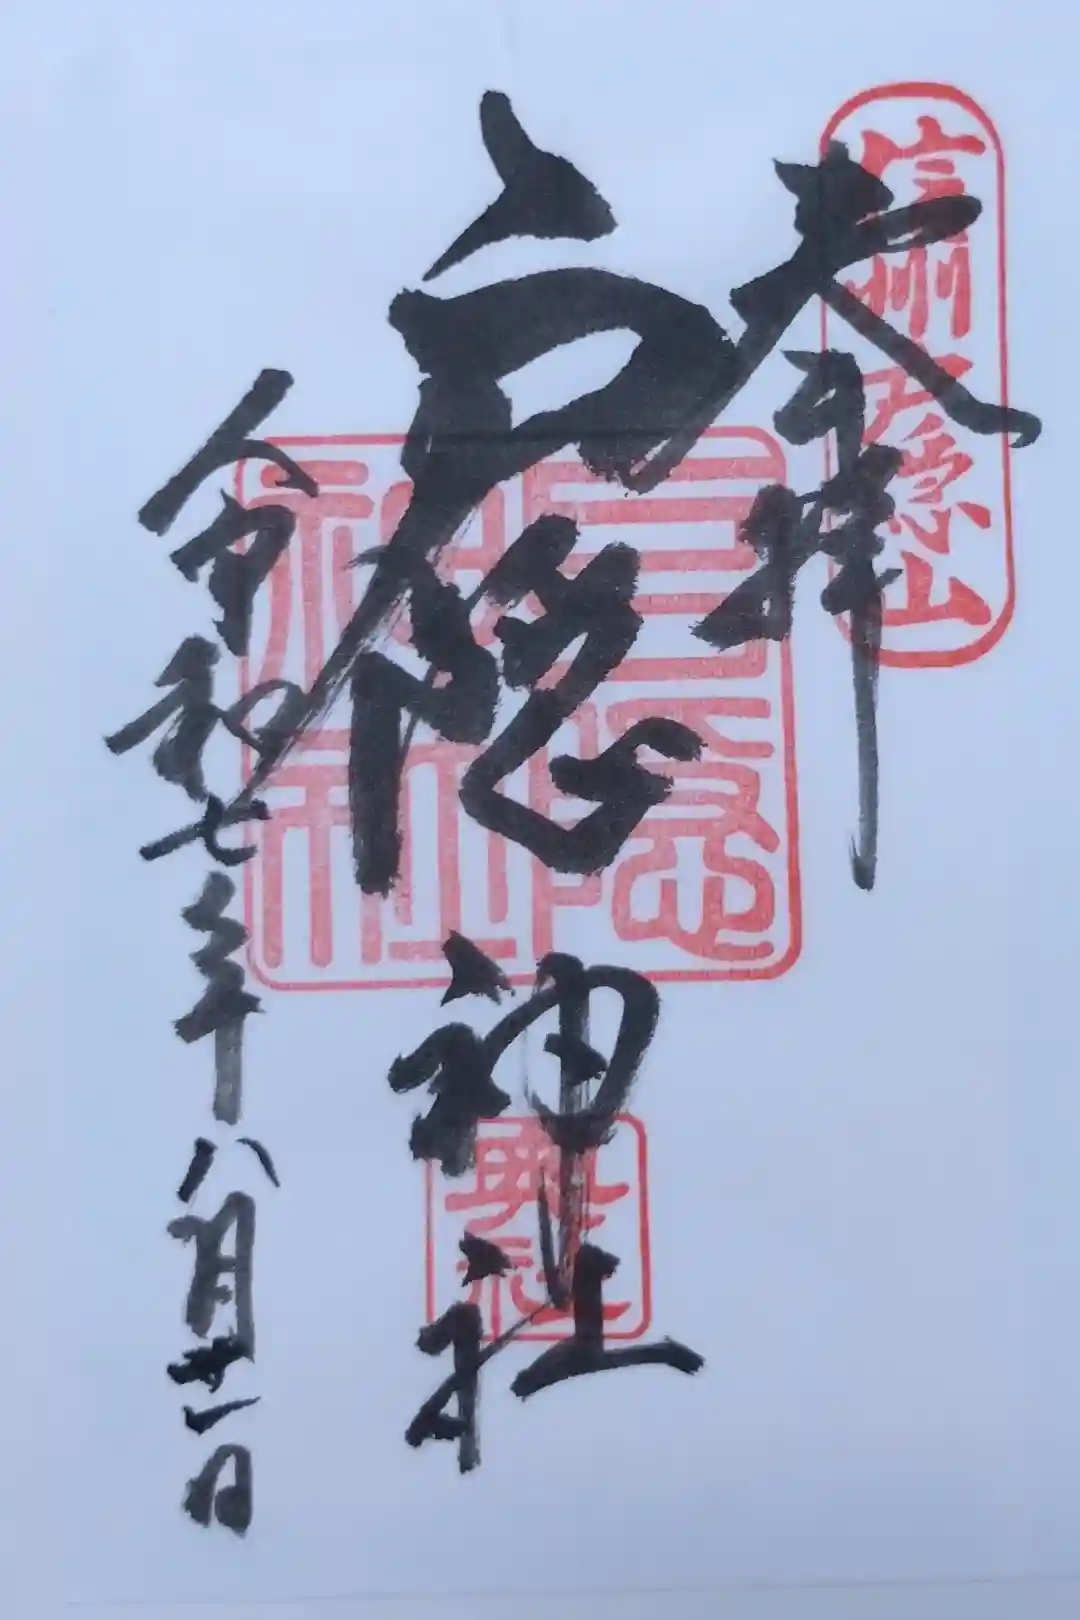 信州戸隠山
奉拝
戸隠神社
戸隠神社
奥社
令和七年八月廿一日